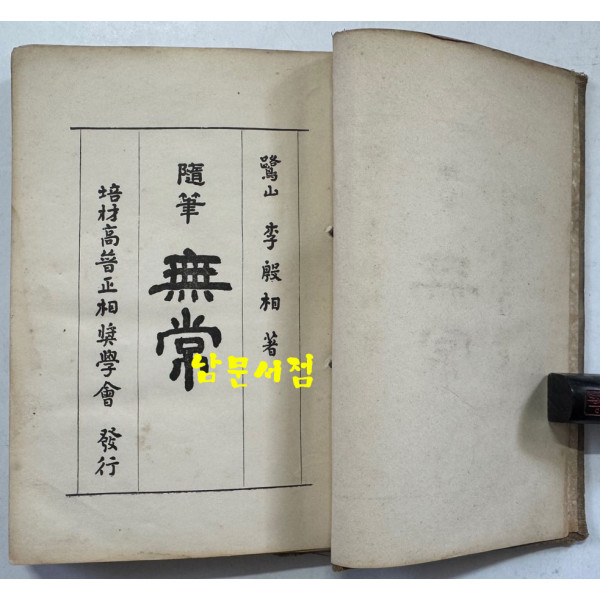 鷺山 李殷相 著
隨筆
無常
培材高普正相奬學會 發行
남문서점